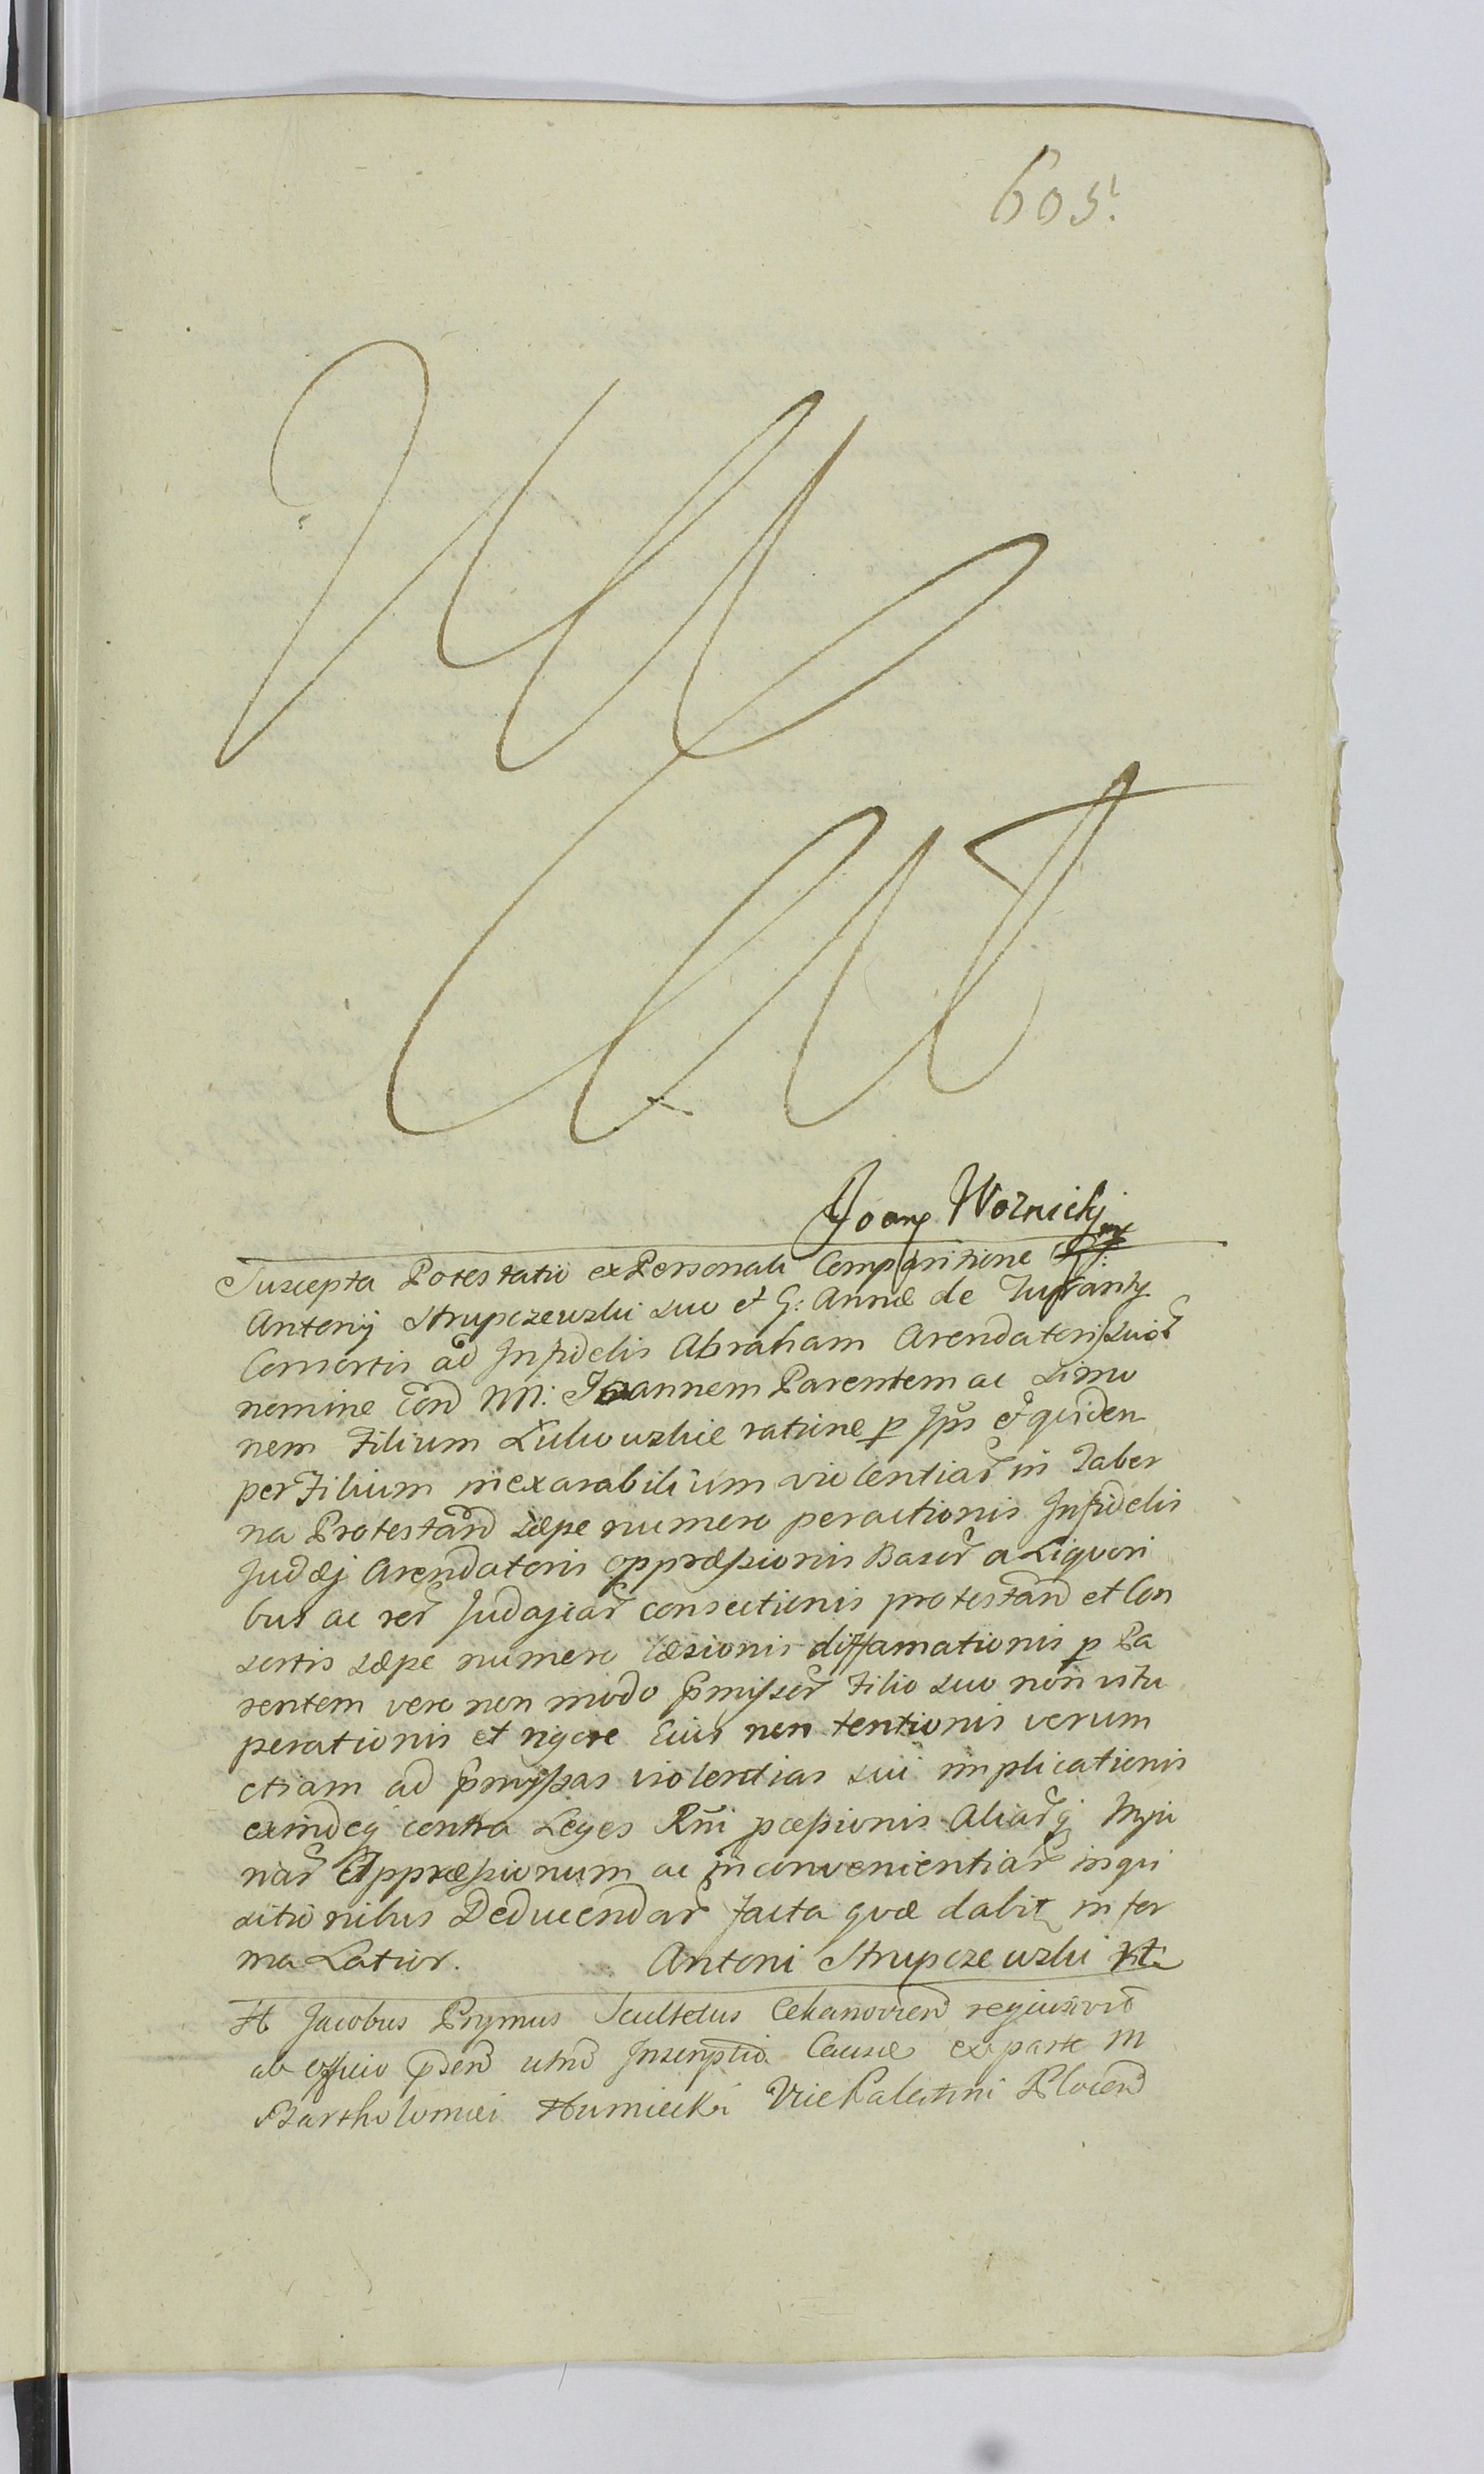 605.
Joang Woznicki
Suscepta Potestatio ex Personali Comparitione
Antonij Strupczewski suo et G: Annæ de
Consortis ac Infidelis Abraham Arendatoris
nomine Con̄d M: Joannem Parentem ac Simo
nem Filium Lulwuskie ratiune p Ips et quidem
per Filium inexarabilium violentiar̄ in Taber
na Protestan̄d sæpe numero peractionis Infidelis
Judæj Arendatoris oppræssionis a Liquori
bus ac rer̄ consectionis protestan̄d et Con
sortis sæpe numero læsionis diffamationis p Pa
rentem vero non modo p̄missor̄ Filio suo non vitu
perationis et rigore Eius non tentionis verum
etiam ad p̄missas violentias sui implicationis
exindeq contra Leges Rn̄i Aliar̄q Inju
riar̄ Oppræssionum ac inconvenientiar̄ inqui
sitionibus Deducendar̄ facta quæ dabit in for
ma Latior. Antoni Strupczewski
Jacobus Prymus Scultetus
ab officio Causæ ex parte M
Bartholomei Humiecki Vice Palatini Plocen̄